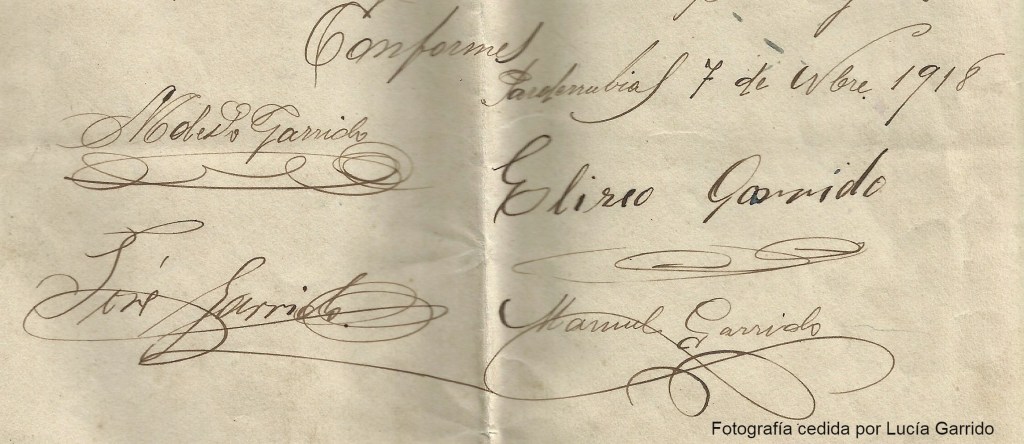 Conformes
Pardenubias 7 de Nbre. 1918
Modesto Garrido
Eliseo Garrido
José Garrido
Manuel Garrido
Fotografía cedida por Lucía Garrido